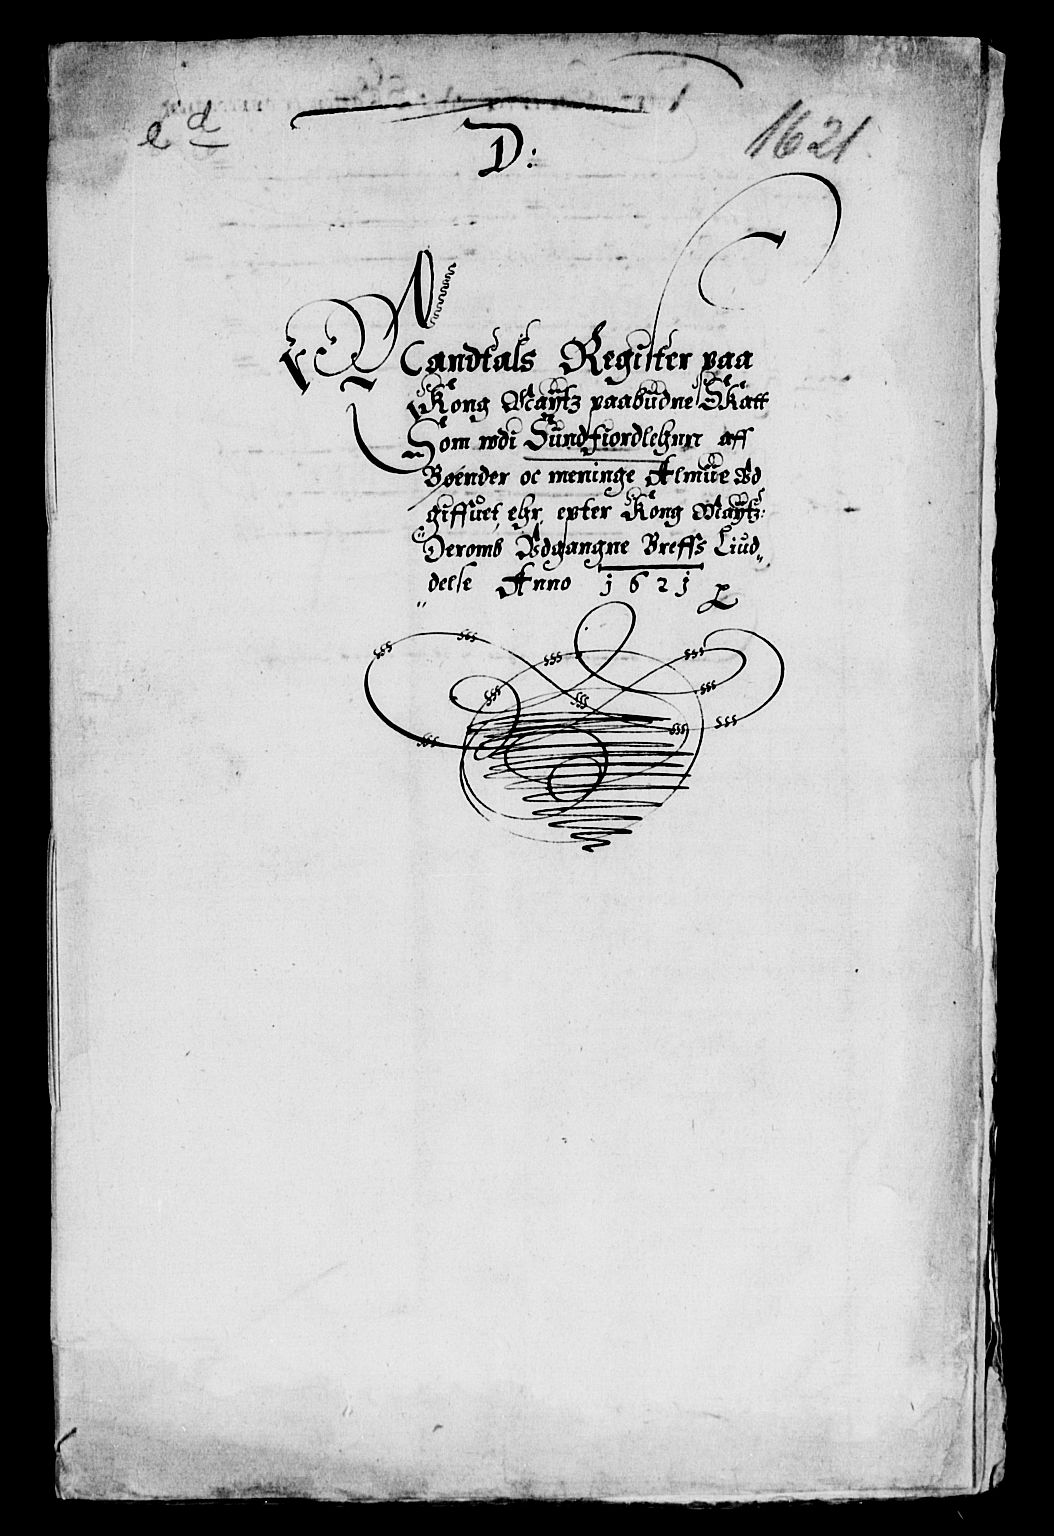 e d
D:
1621
Mandtals Register paa
Kong Maÿtz paabudne Skatt
Som wdi Sundfiordlehnn aff
Bøender oc meninge Almue Vd
giffuet ehr, epter Kong Maÿtz:
Deromb Vdgangne Breffs Liud„
„delse Anno 1621